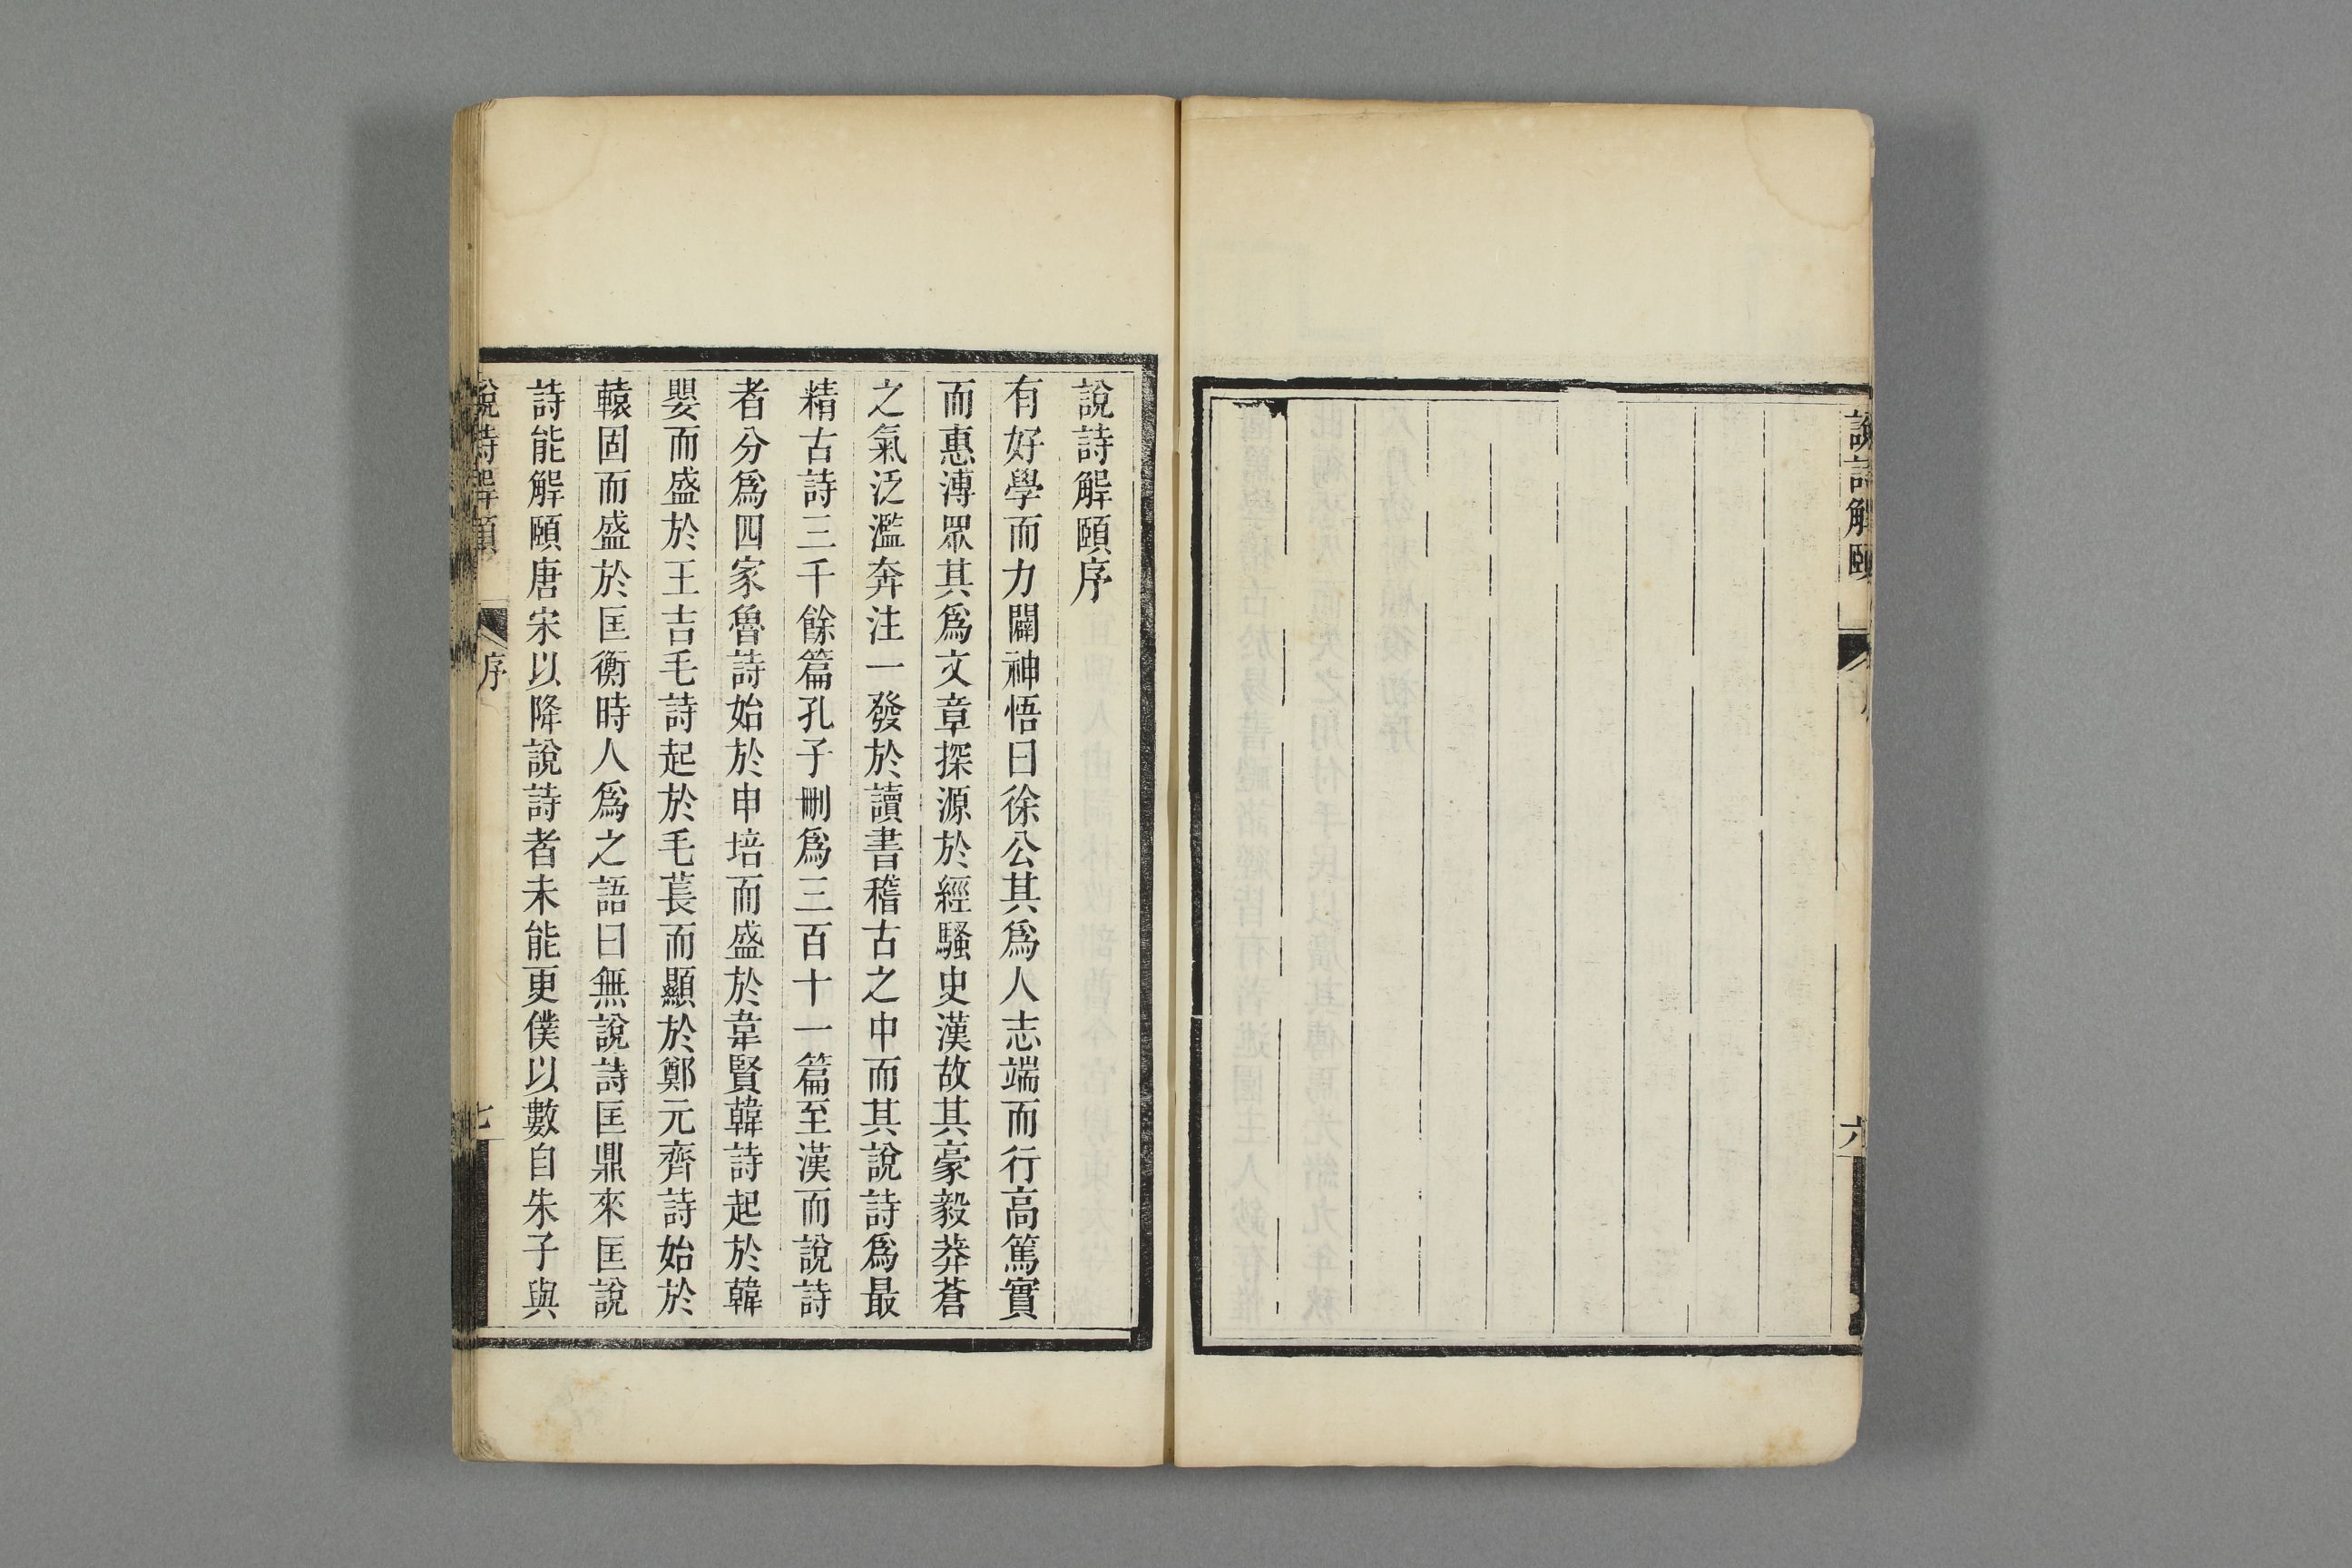 說詩解頤
六
說詩解頤序
有好學而力闢神悟曰徐公其爲人志端而行高篤實
而惠溥眾其爲文章探源於經騷史漢故其豪毅莽蒼
之氣泛濫奔注一發於讀書稽古之中而其說詩爲最
精古詩三千餘篇孔子刪爲三百十一篇至漢而說詩
者分爲四家魯詩始於申培而盛於韋賢韓詩起於韓
嬰而盛於王吉毛詩起於毛萇而顯於鄭元齊詩始於
轅固而盛於匡衡時人爲之語曰無說詩匡鼎來匡說
詩能解頤唐宋以降說詩者未能更僕以數自朱子與
說詩解頤
序
七